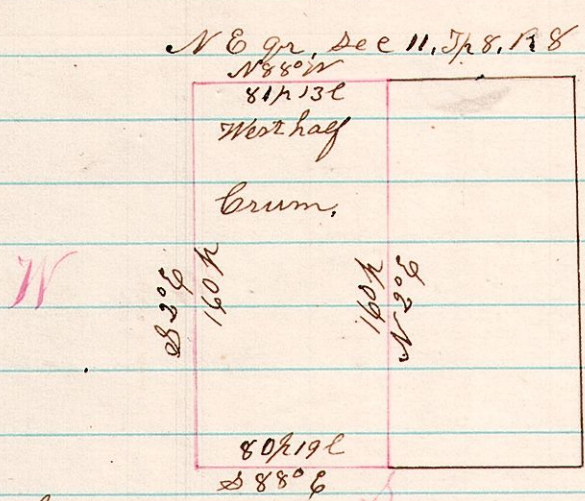 N E qr, Sec 11, Tp 8, R 8
N 88° W
81p 13l
West half
Crum.
W
S 2° E
160 p
160 p
N 2° E
80p 19l
S 88° E